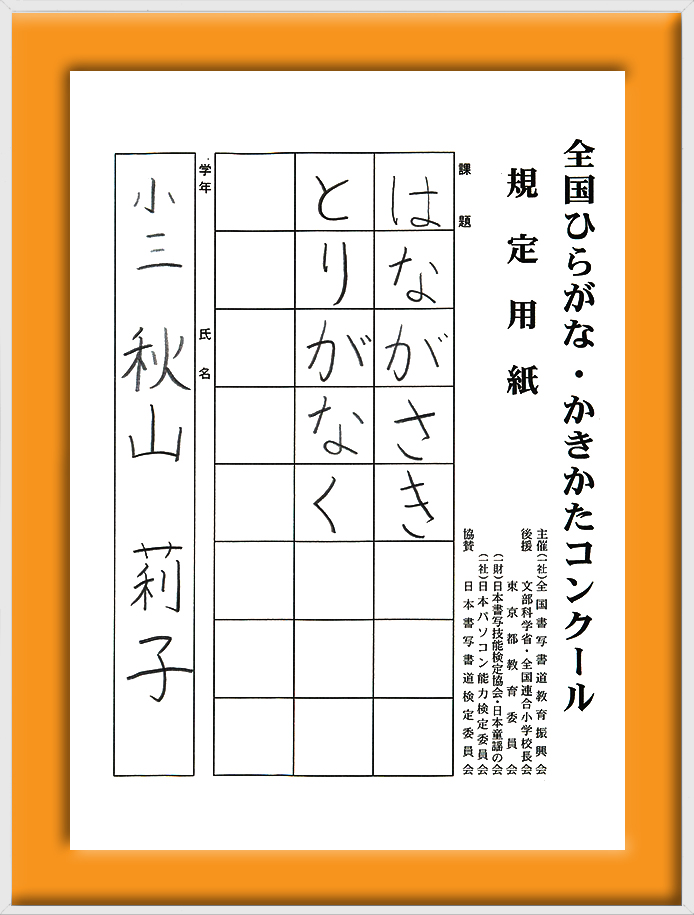 全国ひらがな・かきかたコンクール
規定用紙
主催(一社)全国書写書道教育振興会
後援 文部科学省・全国連合小学校長会
東京都教育委員会
(一財)日本書写技能検定協会・日本童謡の会
(一社)日本パソコン能力検定委員会
協賛 日本書写書道検定委員会
課題
はながさき
とりがなく
学年 氏名
小三 秋山 莉子